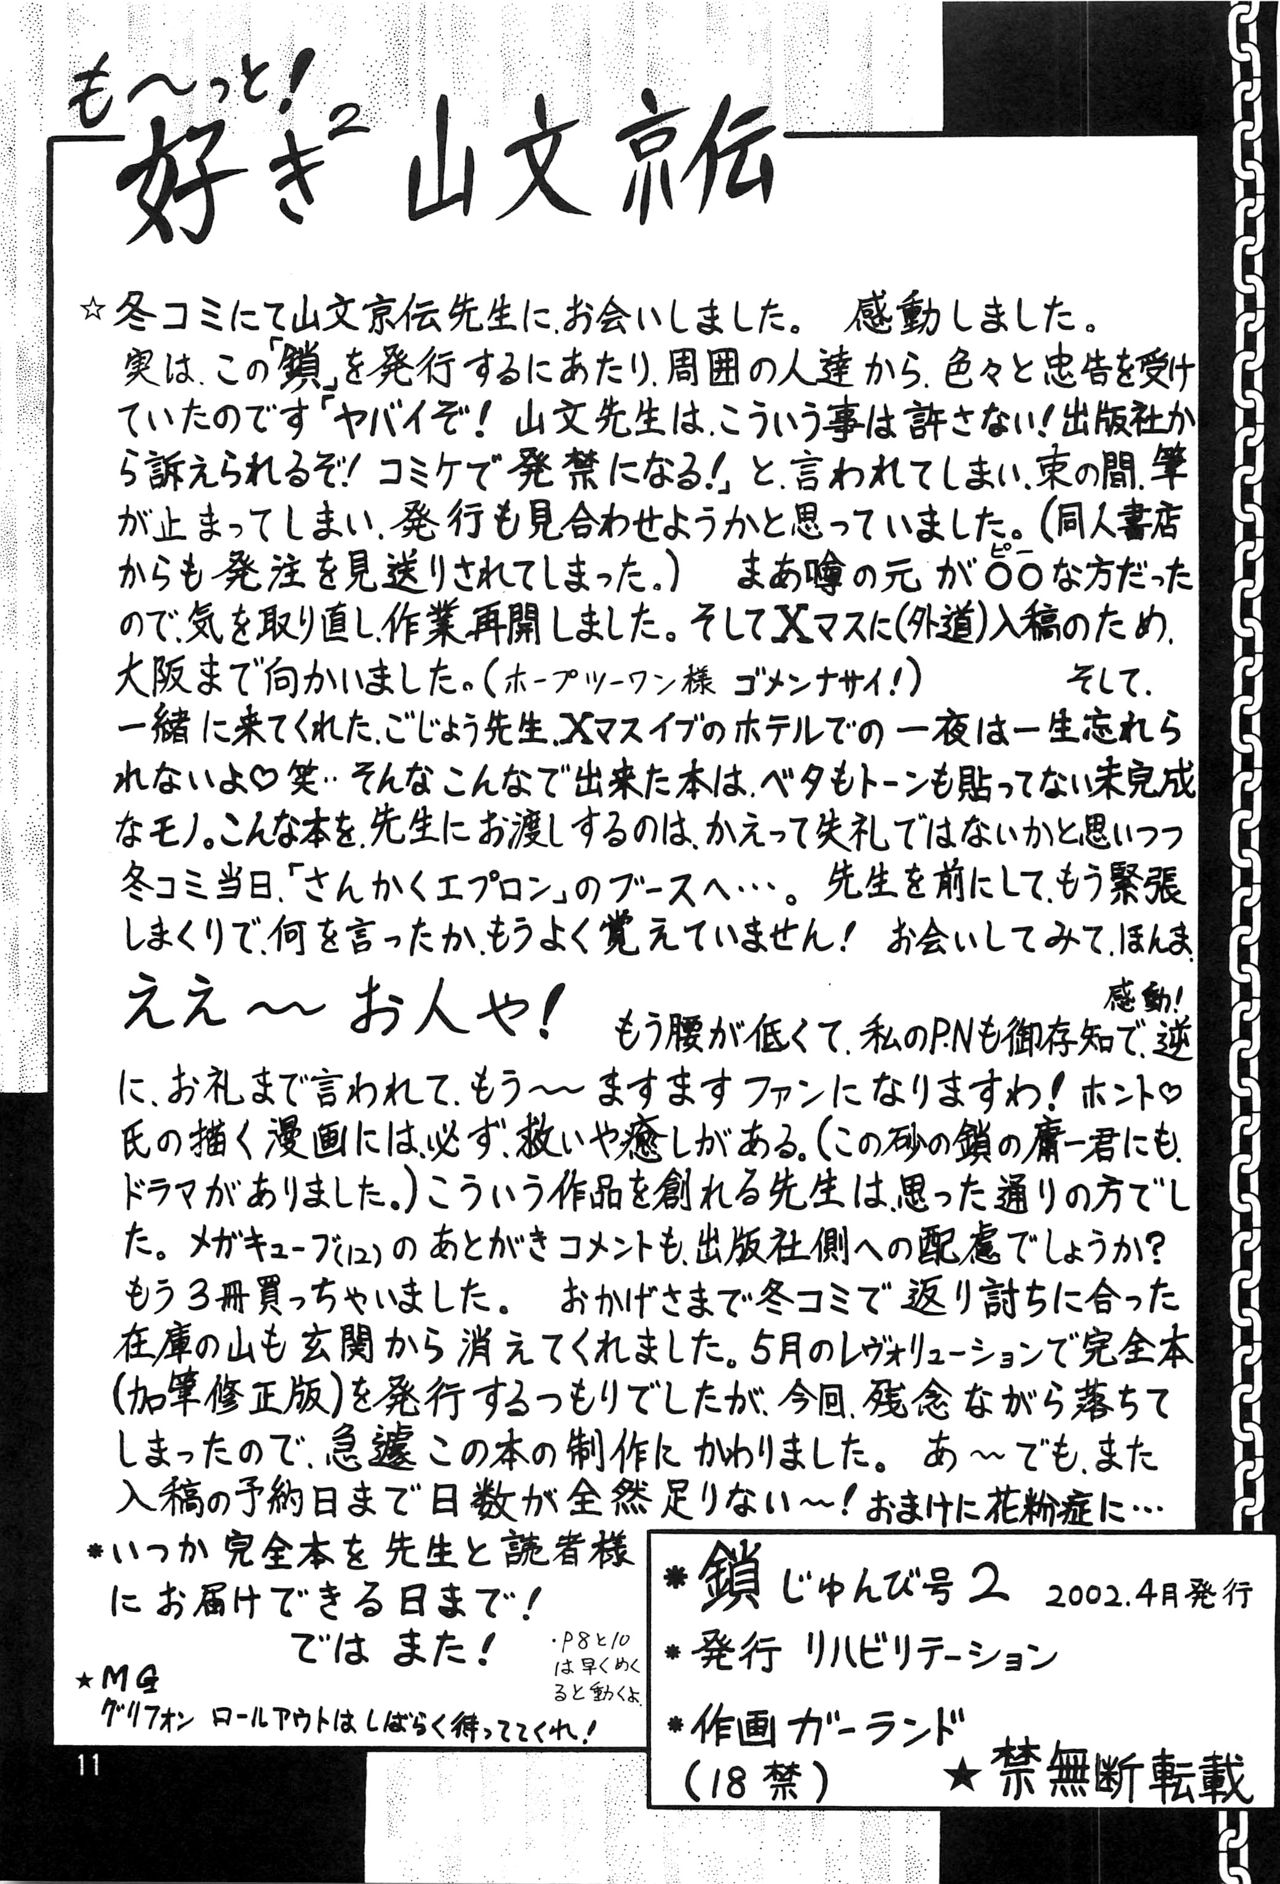 も〜っと!
好き2 山文京伝
☆冬コミにて山文京伝先生に、お会いしました。 感動しました。
実は、この「鎖」を発行するにあたり、周囲の人達から、色々と忠告を受け
ていたのです「ヤバイぞ! 山文先生は、こういう事は許さない!出版社か
ら訴えられるぞ!コミケで発禁になる!」と、言われてしまい、束の間、筆
が止まってしまい、発行も見合わせようかと思っていました。(同人書店
からも発注を見送りされてしまった。) まあ噂の元が○○な方だった
ピー
ので、気を取り直し、作業再開しました。そしてXマスに(外道)入稿のため、
大阪まで向かいました。(ホープツーワン様 ゴメンナサイ!) そして、
一緒に来てくれた、ごじょう先生、Xマスイブのホテルでの一夜は一生忘れら
れないよ♡笑‥そんなこんなで出来た本は、ベタもトーンも貼ってない未完成
なモノ。こんな本を、先生にお渡しするのは、かえって失礼ではないかと思いつつ
冬コミ当日、「さんかくエプロン」のブースへ…。 先生を前にして、もう緊張
しまくりで、何を言ったか、もうよく覚えていません! お会いしてみて、ほんま、
ええ〜〜お人や!
感動!
もう腰が低くて、私のP.Nも御存知で、逆
に、お礼まで言われて、もう〜〜ますますファンになりますわ!ホント♡
氏の描く漫画には、必ず、救いや癒しがある。(この砂の鎖の庸一君にも、
ドラマがありました。)こういう作品を創れる先生は、思った通りの方でし
た。メガキューブ(12)のあとがきコメントも、出版社側への配慮でしょうか?
もう3冊買っちゃいました。 おかげさまで冬コミで返り討ちに合った
在庫の山も玄関から消えてくれました。5月のレヴォリューションで完全本
(加筆修正版)を発行するつもりでしたが、今回、残念ながら落ちて
しまったので、急遽この本の制作にかわりました。 あ〜でも、また
入稿の予約日まで日数が全然足りない〜!おまけに花粉症に…
*いつか完全本を先生と読者様
にお届けできる日まで!
ではまた!
・P8と10
は早くめく
ると動くよ。
★MG
グリフォン ロールアウトはしばらく待っててくれ!
*鎖じゅんび号2 2002.4月発行
*発行 リハビリテーション
*作画 ガーランド
(18禁) ★禁無断転載
11